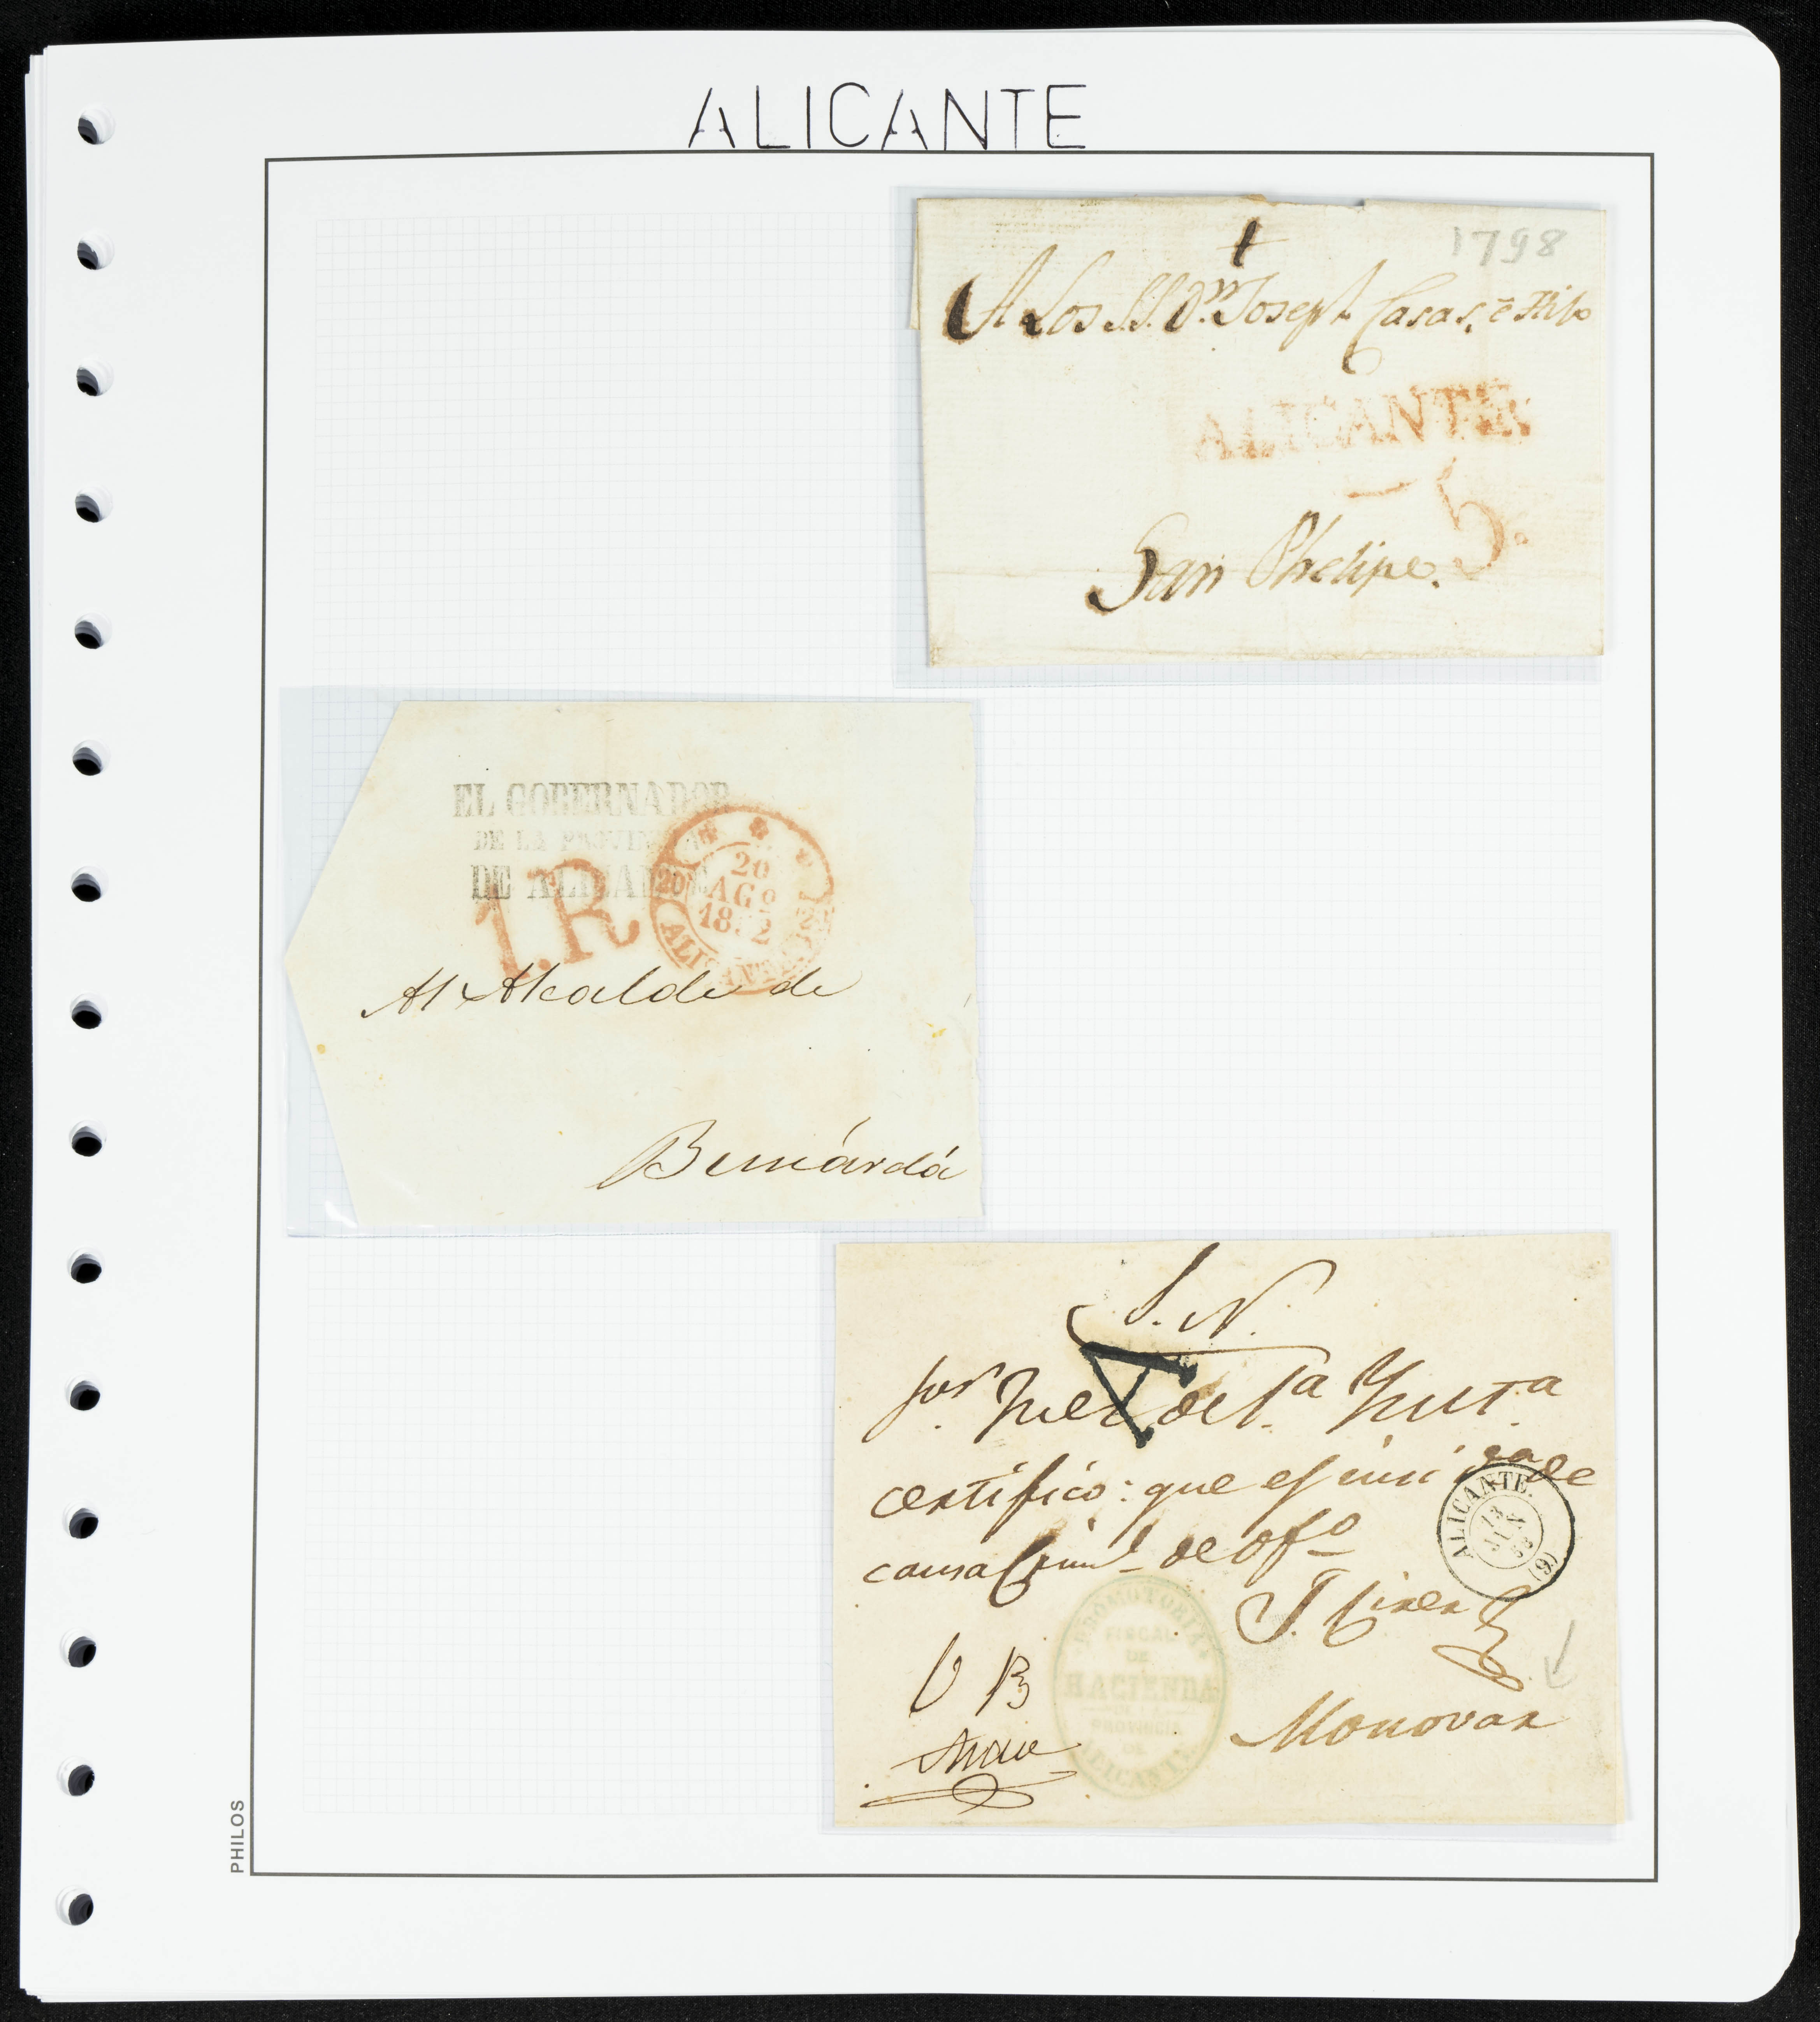 ALICANTE
1798
A Los S.S. Dn. Joseph Casas, è Hijo
ALICANTE
5.
San Phelipe.
EL GOBERNADOR
DE LA PROVINCIA
DE ALICANTE
1.R
20
20
AGO
1852
ALICANTE
Al Alcalde de
Benárdá
S. N.
Sor Juez de 1a Ynsta
certifico: que es
causa Criml de ofo
ALICANTE.
13
JUN
(9)
PROMOTORIA
FISCAL
DE
HACIENDA
DE LA
PROVINCIA
DE
ALICANTE
V B
Monovar
PHILOS